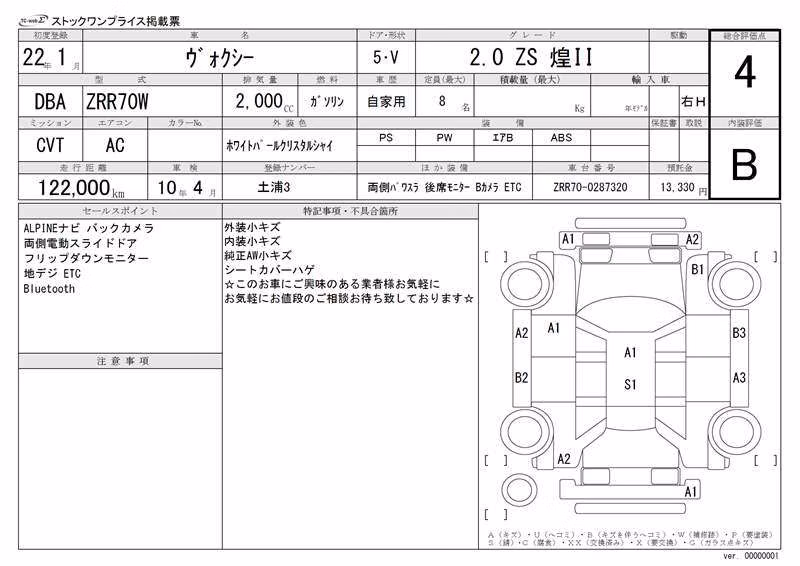 TC-webΣ ストックワンプライス掲載票
初度登録 車名 ドア・形状 グレード 駆動 総合評価点
22年 1月 ヴォクシー 5・V 2.0 ZS 煌II 4
型式 排気量 燃料 車歴 定員(最大) 積載量(最大) 輸入車
DBA ZRR70W 2,000CC ガソリン 自家用 8名 Kg 年モデル 右H
ミッション エアコン カラーNo. 外装色 装備 保証書 取説 内装評価
CVT AC ホワイトパールクリスタルシャイ PS PW エアB ABS B
走行距離 車検 登録ナンバー ほか装備 車台番号 預託金
122,000km 10年 4月 土浦3 両側パワスラ 後席モニター Bカメラ ETC ZRR70-0287320 13,330円
セールスポイント
ALPINEナビ バックカメラ
両側電動スライドドア
フリップダウンモニター
地デジ ETC
Bluetooth
注意事項
特記事項・不具合箇所
外装小キズ
内装小キズ
純正AW小キズ
シートカバーハゲ
☆このお車にご興味のある業者様お気軽に
お気軽にお値段のご相談お待ち致しております☆
A1 A2
[ ] B1 [ ]
A2 A1 A1 B3
B2 S1 A3
[ ] A2 [ ]
A1
[ ]
A(キズ)・U(ヘコミ)・B(キズを伴うヘコミ)・W(補修跡)・P(要塗装)
S(錆)・C(腐食)・XX(交換済み)・X(要交換)・G(ガラス点キズ)
ver. 00000001